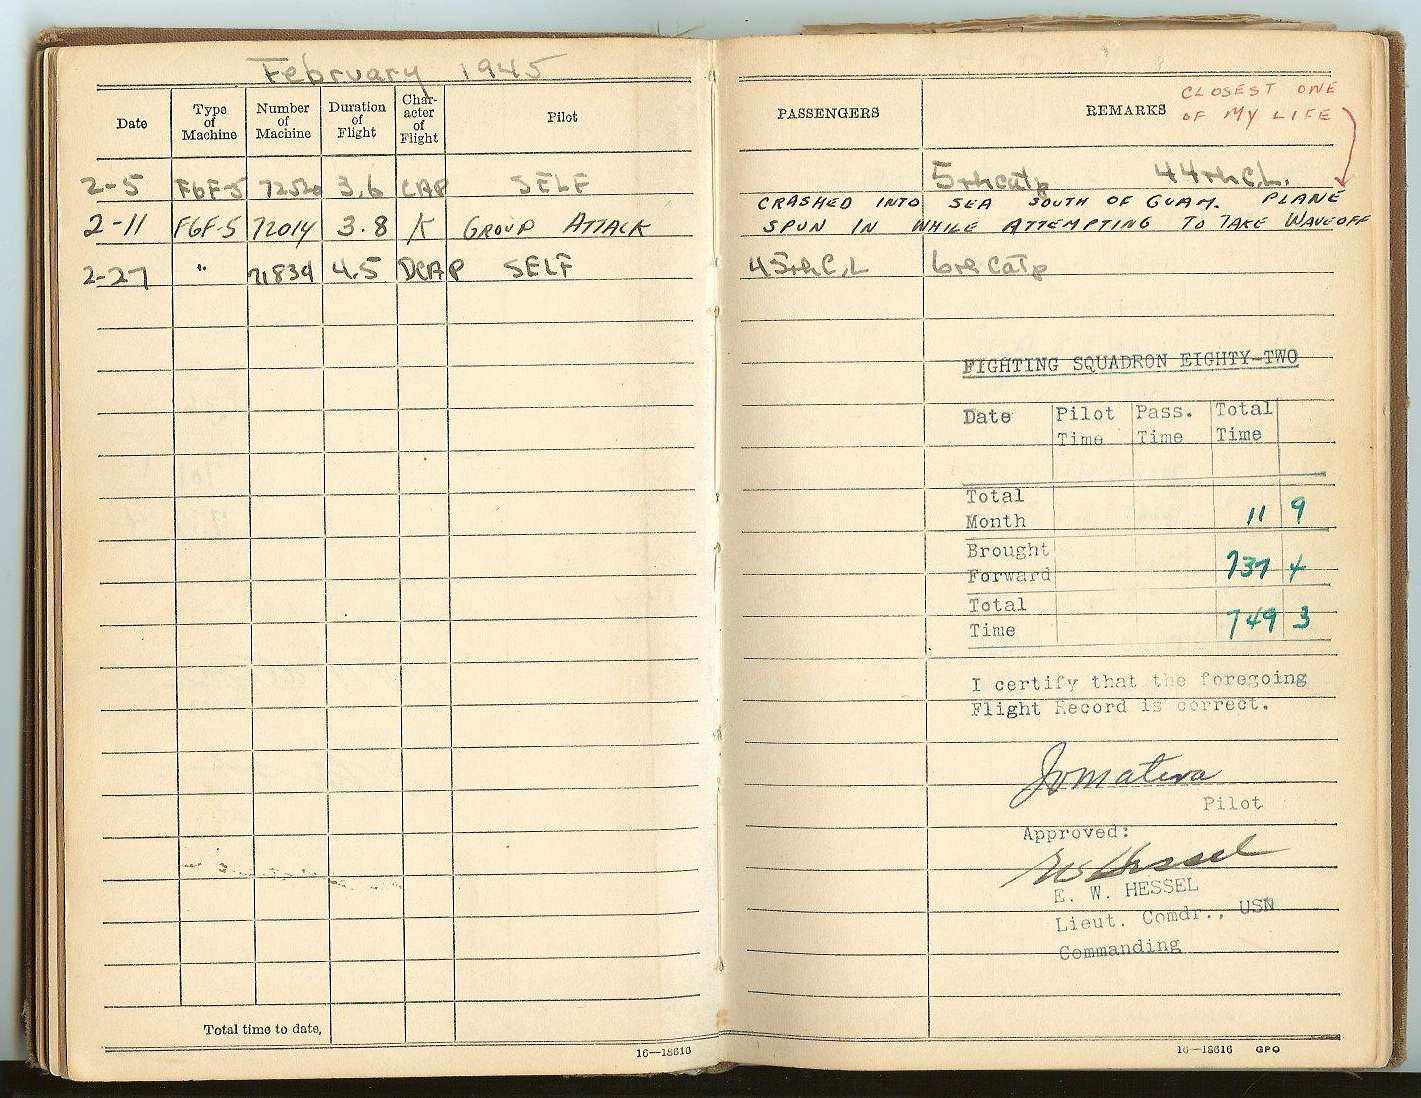 February 1945
Date Type of Machine Number of Machine Duration of Flight Char- acter of Flight Pilot
2-5 F6F-5 72520 3.6 CAP SELF
2-11 F6F-5 72014 3.8 K GROUP ATTACK
2-27 " 71834 4.5 DCAP SELF
Total time to date,
16—18616
CLOSEST ONE
OF MY LIFE
PASSENGERS REMARKS
5th catp 44th C.L.
CRASHED INTO SEA SOUTH OF GUAM. PLANE
SPUN IN WHILE ATTEMPTING TO TAKE WAVEOFF
45th C.L 6th Catp
FIGHTING SQUADRON EIGHTY-TWO
Date Pilot Time Pass. Time Total Time
Total Month 11 9
Brought Forward 737 4
Total Time 749 3
I certify that the foregoing
Flight Record is correct.
Pilot
Approved:
EW Hessel
E. W. HESSEL
Lieut. Comdr., USN
Commanding
16—18616 GPO